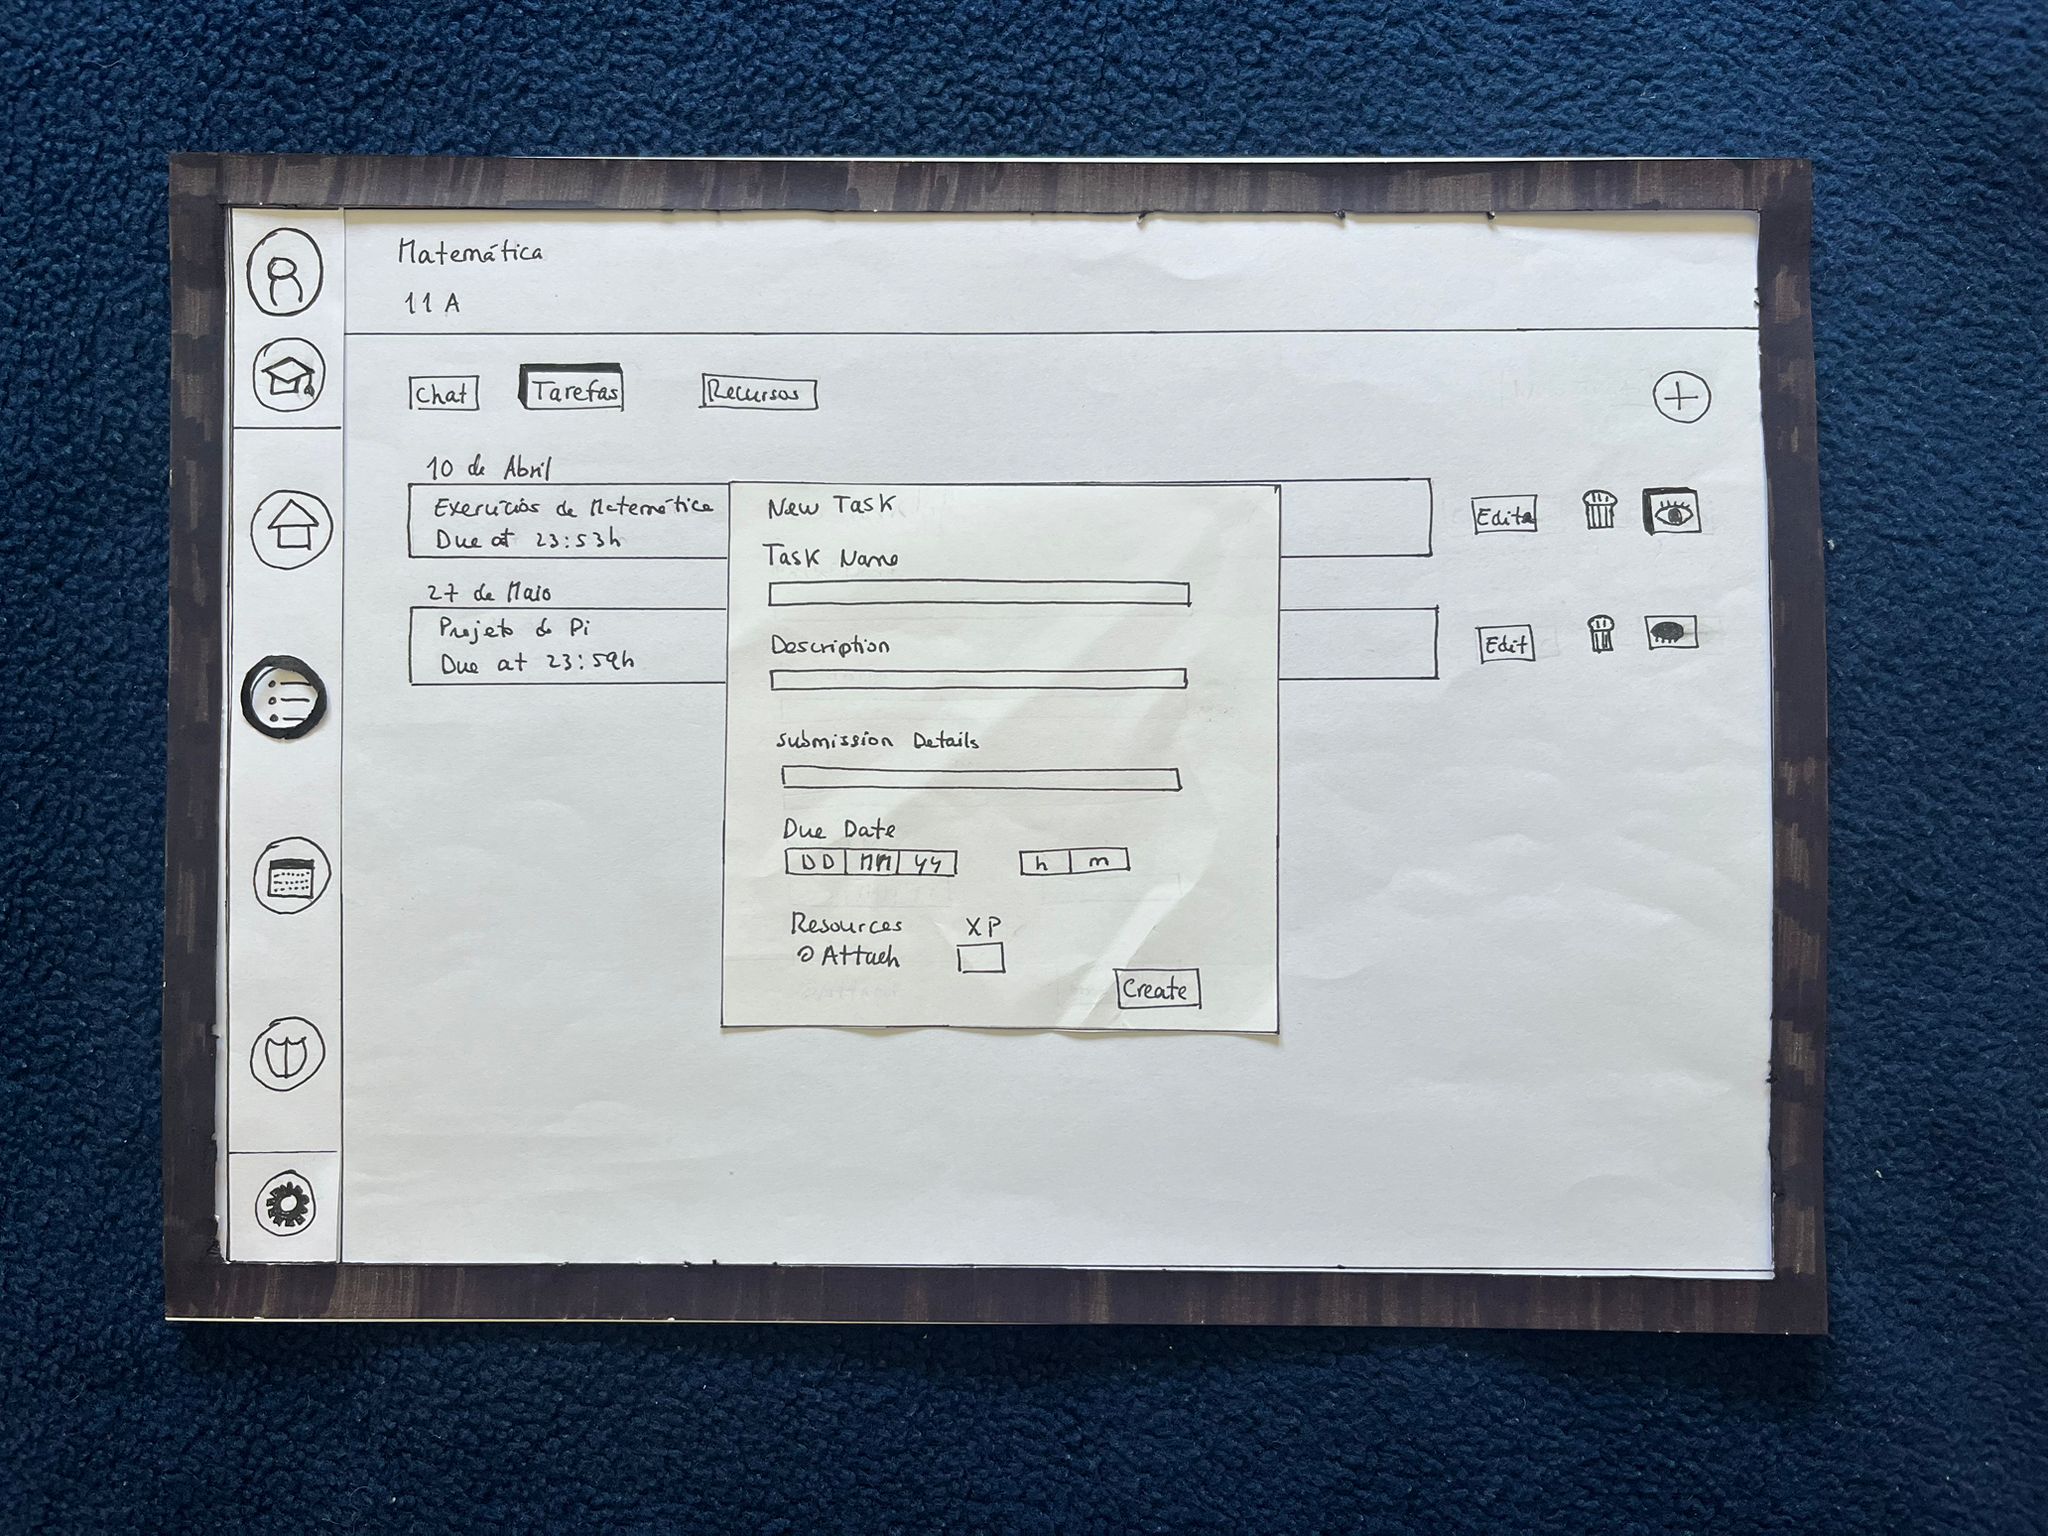 Matemática
11 A
Chat
Tarefas
Recursos
10 de Abril
Exercícios de Matemática
Due at 23:53h
Edita
27 de Maio
Projeto do Pi
Due at 23:59h
Edit
New Task
Task Name
Description
Submission Details
Due Date
DD MM YY h m
Resources XP
Attach
Create